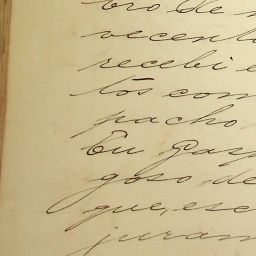 bro de
vecent
recebi e
tos com
pacho
Eu Gasp
goso de
que, esc
juram